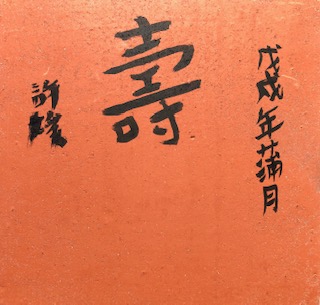 戊戌年蒲月
壽
許